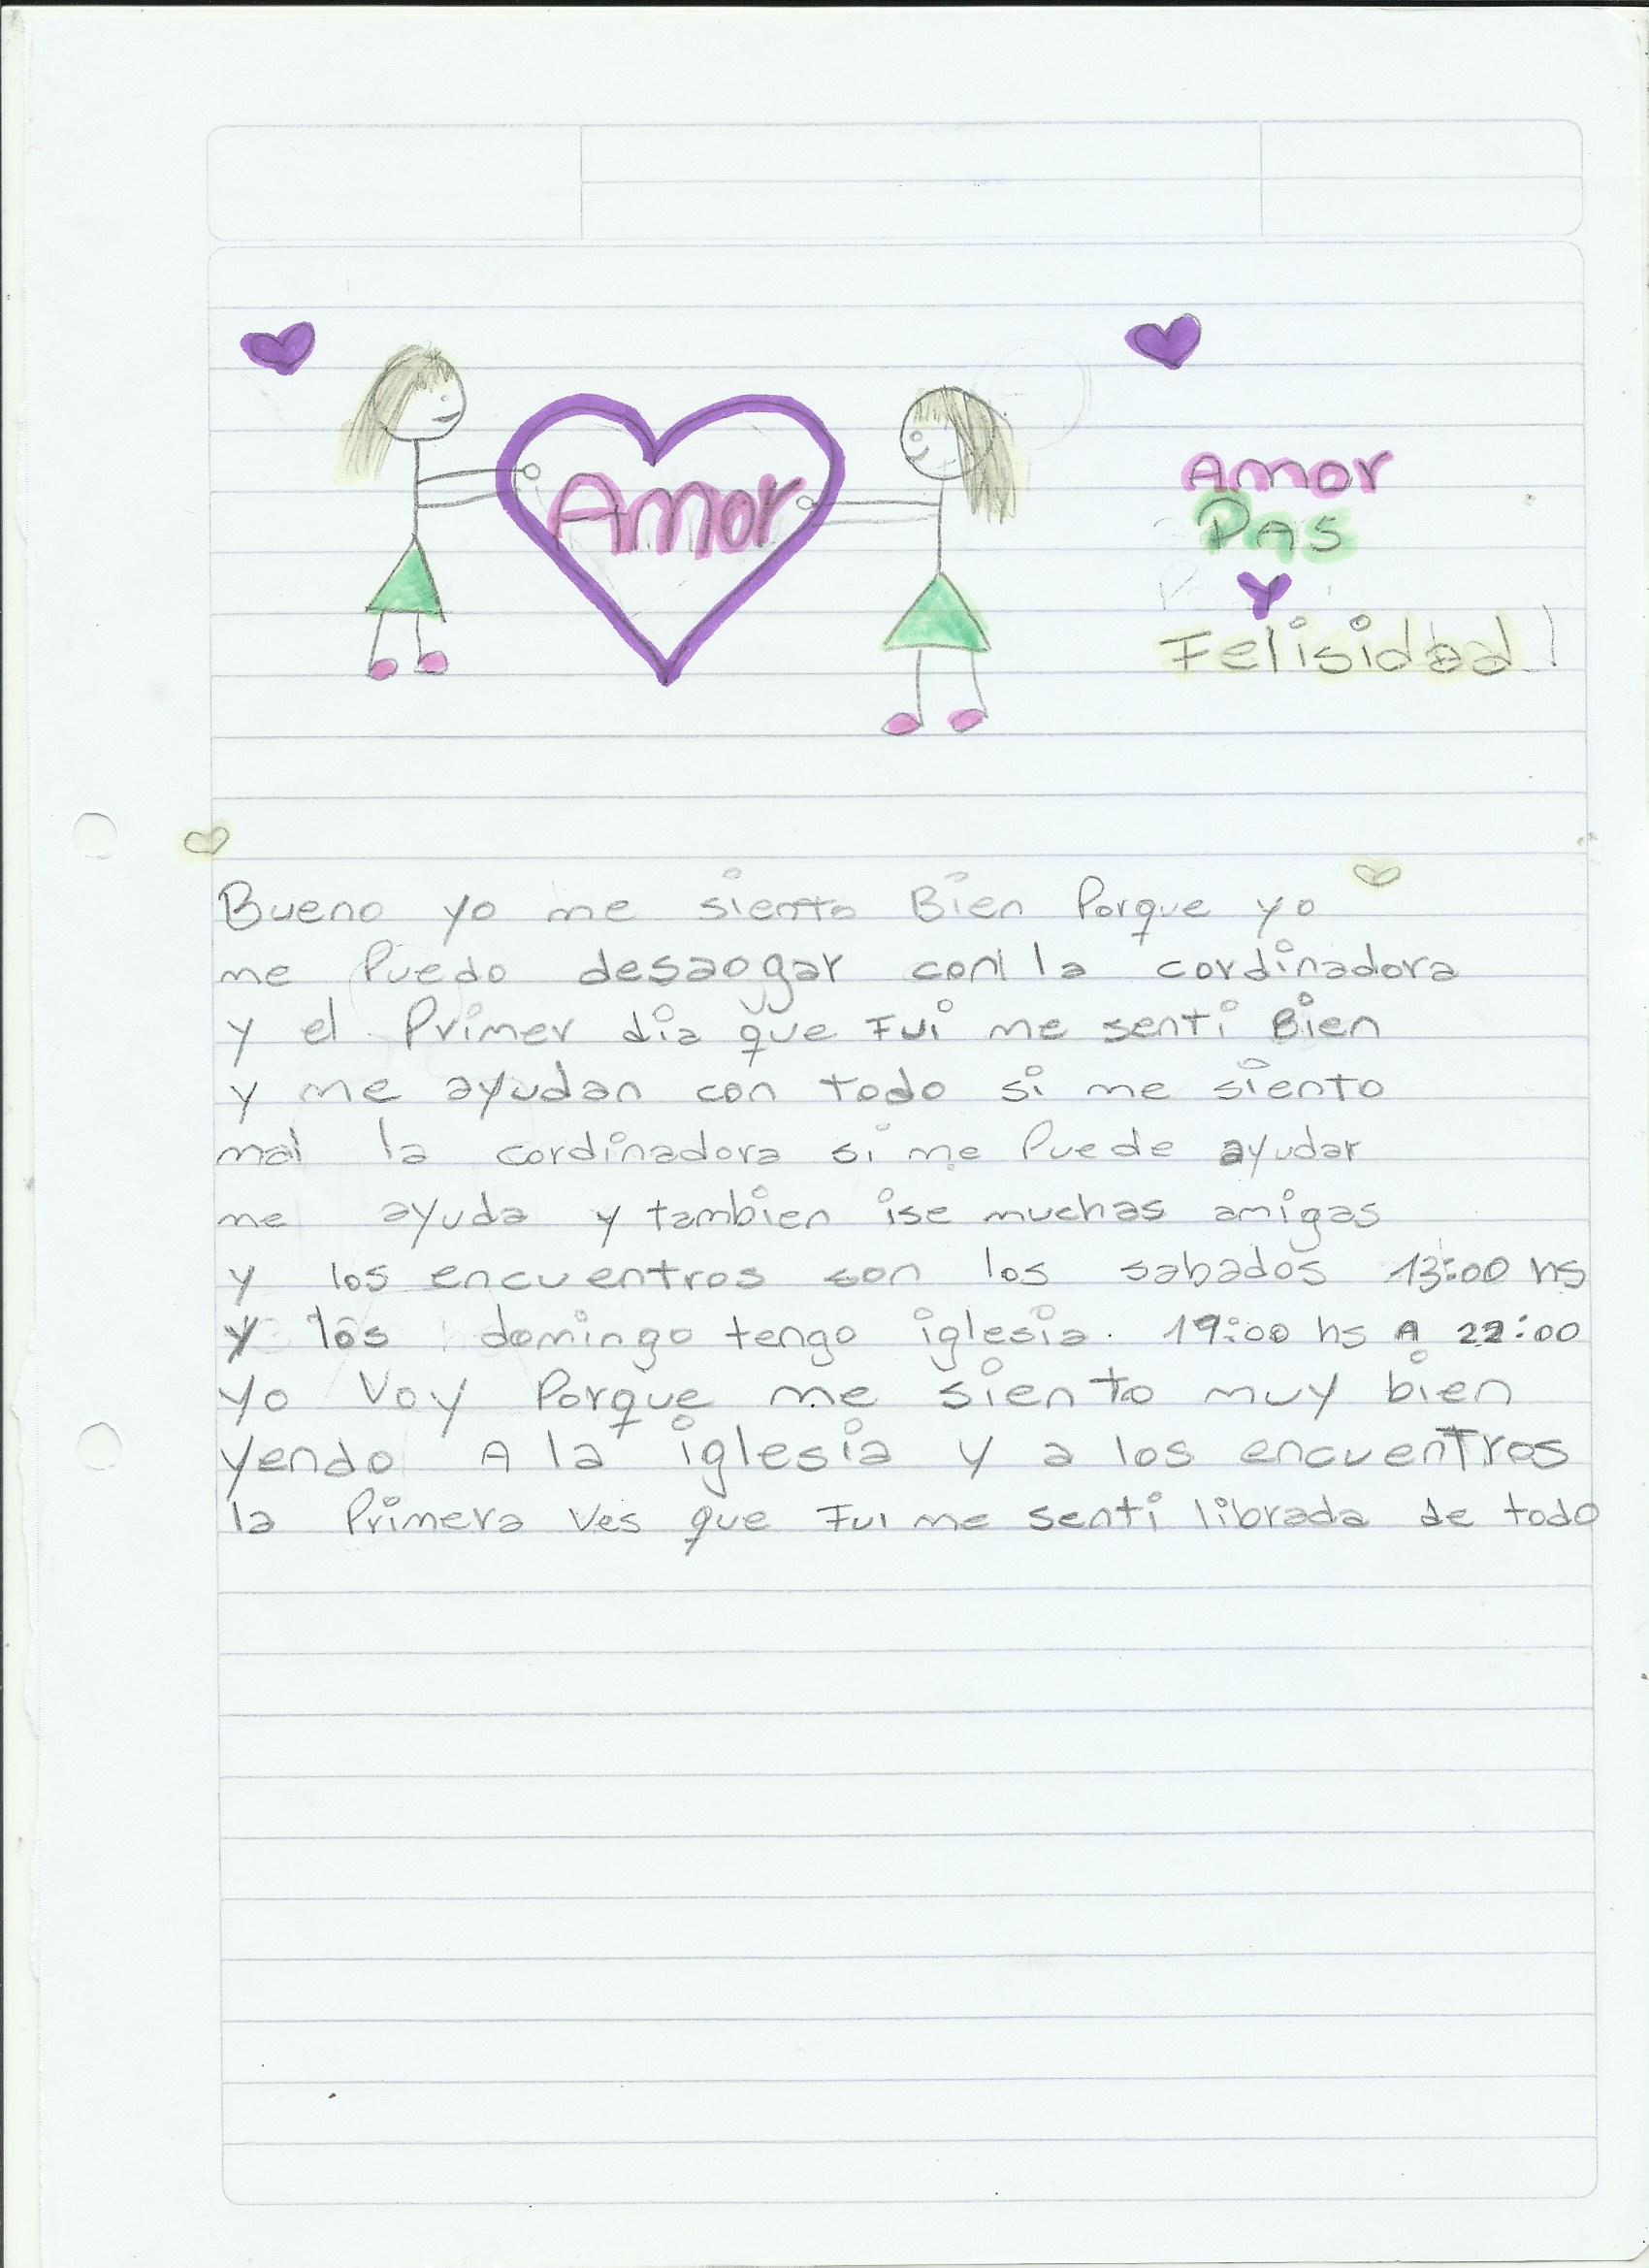 Amor
Amor
Pas
Y
Felisidad!
Bueno yo me siento Bien Porque yo
me Puedo desaogar con la cordinadora
y el Primer dia que Fui me senti Bien
y me ayudan con todo si me siento
mal la cordinadora si me Puede ayudar
me ayuda y tambien ise muchas amigas
y los encuentros son los sabados 13:00 hs
y los domingo tengo iglesia. 19:00 hs A 22:00
yo Voy Porque me siento muy bien
yendo A la iglesia y a los encuentros
la Primera Ves que Fui me senti librada de todo